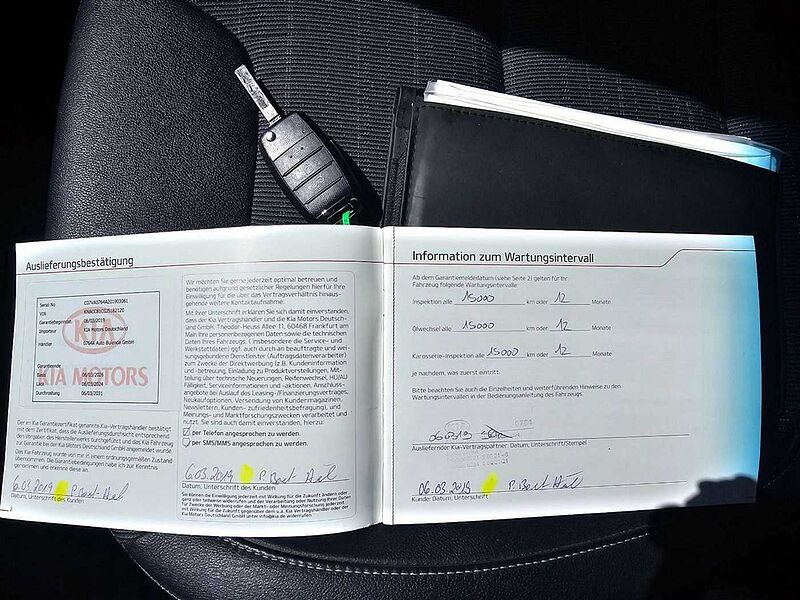 Auslieferungsbestätigung
Serial No
VIN
Garantiebeginn 06/03/2019
Importeur Kia Motors Deutschland
Händler
Garantieende
Lack 06/03/2024
Durchrostung 06/03/2031
KIA
KIA MOTORS
Der im Kia Garantiezertifikat genannte Kia-Vertragshändler bestätigt
mit dem Zertifikat, dass die Auslieferungsdurchsicht entsprechend
den Vorgaben des Herstellerwerks durchgeführt und das Kia Fahrzeug
zur Garantie bei der Kia Motors Deutschland angemeldet wurde.
Das Kia Fahrzeug wurde von mir in einem ordnungsgemäßen Zustand
übernommen. Die Garantiebedingungen habe ich zur Kenntnis
genommen und erkenne diese an.
6.03.2019
Datum, Unterschrift des Kunden
Wir möchten Sie gerne jederzeit optimal betreuen und
benötigen aufgrund gesetzlicher Regelungen hierfür Ihre
Einwilligung für die über das Vertragsverhältnis hinaus-
gehende weitere Kontaktaufnahme.
Mit Ihrer Unterschrift erklären Sie sich damit einverstanden,
dass der Kia-Vertragshändler und die Kia Motors Deutsch-
land GmbH, Theodor-Heuss-Allee 11, 60468 Frankfurt am
Main Ihre personenbezogenen Daten sowie die technischen
Daten Ihres Fahrzeugs, ( insbesondere die Service- und
Werkstattdaten) ggf. auch durch an beauftragte und wei-
sungsgebundene Dienstleister (Auftragsdatenverarbeiter)
zum Zwecke der Direktwerbung (z.B. Kundeninformation
und -betreuung, Einladung zu Produktvorstellungen, Mit-
teilung über technische Neuerungen, Reifenwechsel, HU/AU
Fälligkeit, Serviceinformationen und -aktionen, Anschluss-
angebote bei Auslauf des Leasing-/Finanzierungsvertrages,
Neukaufoptionen, Versendung von Kundenmagazinen,
Newslettern, Kunden- zufriedenheitsbefragung), und
Meinungs- und Marktforschungszwecken verarbeitet und
nutzt. Sie sind auch damit einverstanden, hierzu:
per Telefon angesprochen zu werden.
per SMS/MMS angesprochen zu werden.
6.03.2019
Datum, Unterschrift des Kunden
Sie können die Einwilligung jederzeit mit Wirkung für die Zukunft ändern oder
ganz oder teilweise widerrufen und der Verarbeitung oder Nutzung Ihrer Daten
für Zwecke der Werbung oder der Markt- oder Meinungsforschung jederzeit
mit Wirkung für die Zukunft gegenüber dem o.a. Kia Vertragshändler oder der
Kia Motors Deutschland GmbH unter info@kia.de widerrufen.
Information zum Wartungsintervall
Ab dem Garantiemeldedatum (siehe Seite 2) gelten für Ihr
Fahrzeug folgende Wartungsintervalle:
Inspektion alle 15000 km oder 12 Monate
Ölwechsel alle 15000 km oder 12 Monate
Karosserie-Inspektion alle 15000 km oder 12 Monate
je nachdem, was zuerst eintritt.
Bitte beachten Sie auch die Einzelheiten und weiterführenden Hinweise zu den
Wartungsintervallen in der Bedienungsanleitung des Fahrzeugs.
06.03.19
Ausliefernder Kia-Vertragspartner: Datum, Unterschrift/Stempel
06.03.2019
Kunde: Datum, Unterschrift